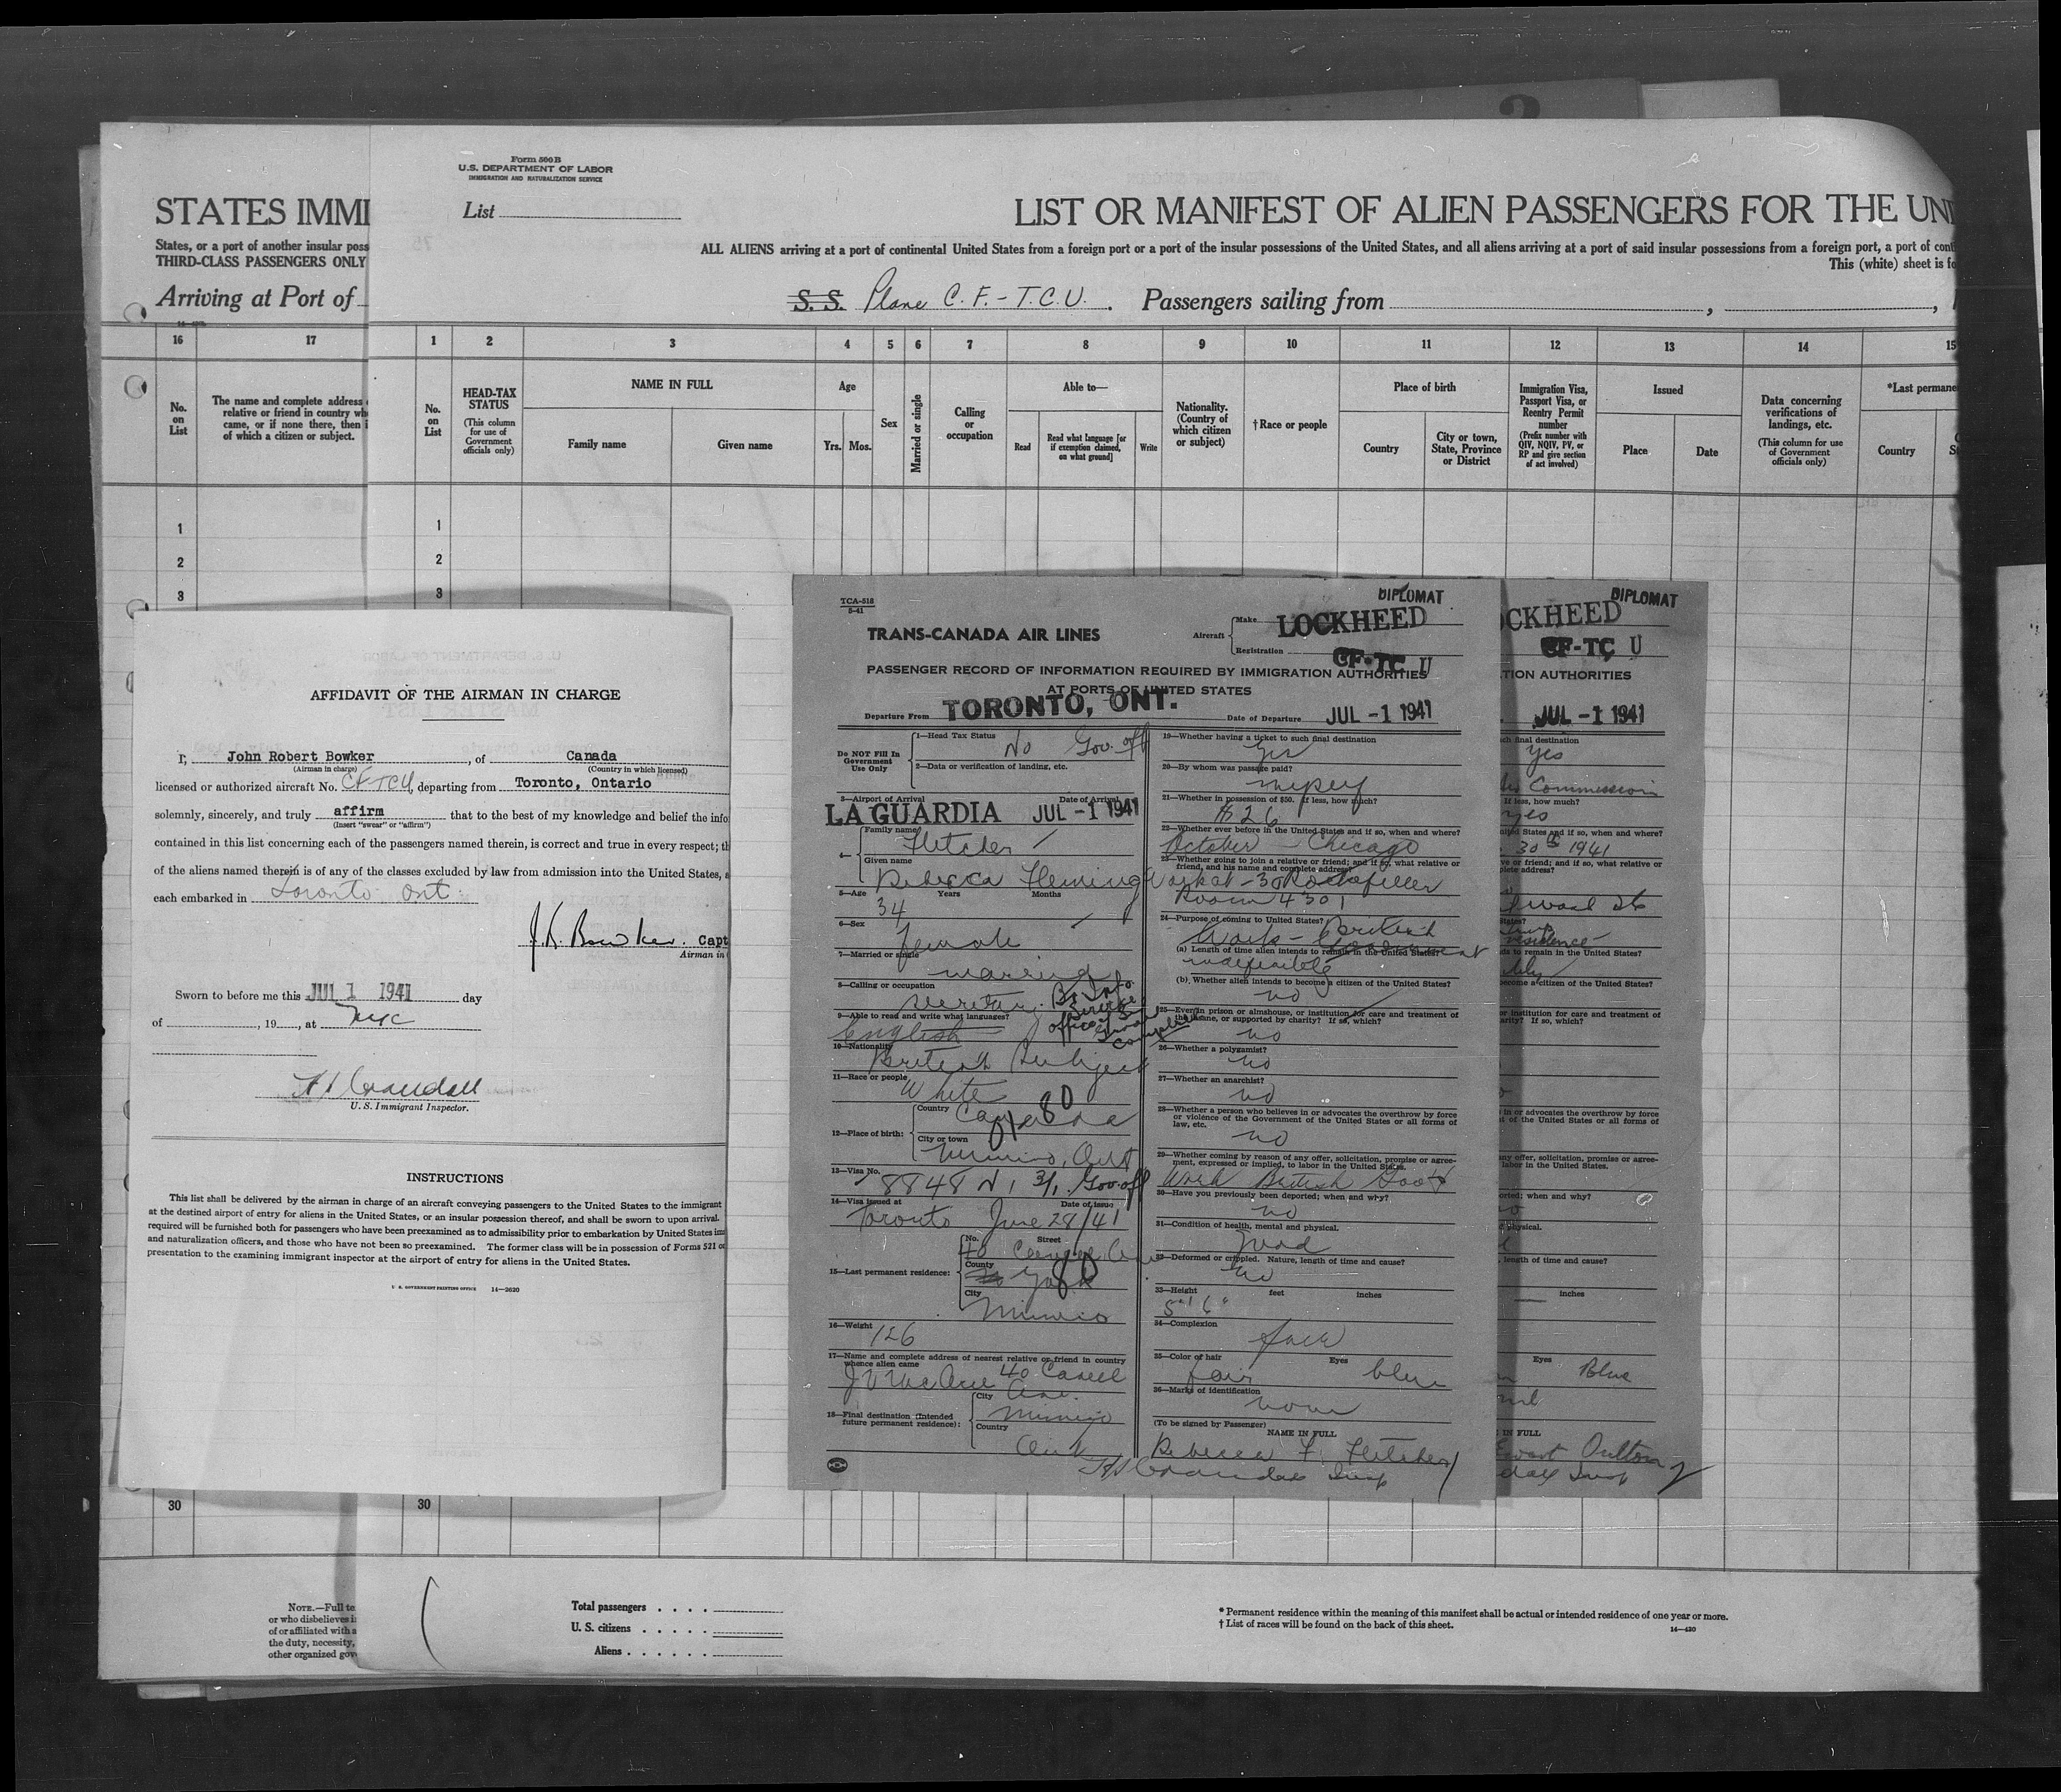 Form 500 B
U.S. DEPARTMENT OF LABOR
IMMIGRATION AND NATURALIZATION SERVICE
STATES IMMI
List
LIST OR MANIFEST OF ALIEN PASSENGERS FOR THE UNI
States, or a port of another insular poss
THIRD-CLASS PASSENGERS ONLY
ALL ALIENS arriving at a port of continental United States from a foreign port or a port of the insular possessions of the United States, and all aliens arriving at a port of said insular possessions from a foreign port, a port of cont
This (white) sheet is fo
Arriving at Port of
S. S. Plane C. F. - T. C. U. Passengers sailing from
16 17 1 2 3 4 5 6 7 8 9 10 11 12 13 14 15
No. on List
The name and complete address
relative or friend in country wh
came, or if none there, then
of which a citizen or subject.
No. on List
HEAD-TAX STATUS
(This column for use of Government officials only)
NAME IN FULL
Family name
Given name
Age
Yrs. Mos.
Sex
Married or single
Calling or occupation
Able to—
Read
Read what language [or if exemption claimed, on what ground]
Write
Nationality. (Country of which citizen or subject)
†Race or people
Place of birth
Country
City or town, State, Province or District
Immigration Visa, Passport Visa, or Reentry Permit number
(Prefix number with QIV, NQIV, PV, or RP and give section of act involved)
Issued
Place
Date
Data concerning verifications of landings, etc.
(This column for use of Government officials only)
*Last permane
Country
1 1
2 2
3 3
AFFIDAVIT OF THE AIRMAN IN CHARGE
I, John Robert Bowker, of Canada
(Airman in charge) (Country in which licensed)
licensed or authorized aircraft No. CF TCU, departing from Toronto, Ontario
solemnly, sincerely, and truly affirm that to the best of my knowledge and belief the info
(Insert "swear" or "affirm")
contained in this list concerning each of the passengers named therein, is correct and true in every respect; th
of the aliens named therein is of any of the classes excluded by law from admission into the United States, a
each embarked in Toronto Ont.
J. R. Bowker. Capt
Airman in
Sworn to before me this JUL 1 1941 day
of , 19 , at NYC
H S Crandall
U. S. Immigrant Inspector.
INSTRUCTIONS
This list shall be delivered by the airman in charge of an aircraft conveying passengers to the United States to the immigrant
at the destined airport of entry for aliens in the United States, or an insular possession thereof, and shall be sworn to upon arrival.
required will be furnished both for passengers who have been preexamined as to admissibility prior to embarkation by United States im
and naturalization officers, and those who have not been so preexamined. The former class will be in possession of Forms 521 o
presentation to the examining immigrant inspector at the airport of entry for aliens in the United States.
U. S. GOVERNMENT PRINTING OFFICE 14—2620
TCA-518
5-41
DIPLOMAT
TRANS-CANADA AIR LINES
Aircraft
Make LOCKHEED
Registration CF-TC U
PASSENGER RECORD OF INFORMATION REQUIRED BY IMMIGRATION AUTHORITIES
AT PORTS OF UNITED STATES
Departure From TORONTO, ONT. Date of Departure JUL -1 1941
Do NOT Fill In
Government
Use Only
1—Head Tax Status
No Gov. off
2—Data or verification of landing, etc.
3—Airport of Arrival Date of Arrival
LA GUARDIA JUL -1 1941
4—
Family name
Fletcher
Given name
Rebecca Fleming
5—Age Years Months
34
6—Sex
female
7—Married or single
married
8—Calling or occupation
Secretary. Br Info.
Service
office
9—Able to read and write what languages?
English
10—Nationality
British Subject
11—Race or people
White
12—Place of birth:
Country
Canada
City or town
Mimico, Ont
13—Visa No.
8848 3/1 Gov. off
14—Visa issued at Date of issue
Toronto June 28/41
15—Last permanent residence:
No. Street
40
County
York
City
Mimico
16—Weight
126
17—Name and complete address of nearest relative or friend in country
whence alien came
40
Ave.
18—Final destination (Intended
future permanent residence):
City
Mimico
Country
Ont
19—Whether having a ticket to such final destination
Yes
20—By whom was passage paid?
myself
21—Whether in possession of $50. If less, how much?
$26
22—Whether ever before in the United States and if so, when and where?
October - Chicago
23—Whether going to join a relative or friend; and if so, what relative or
friend, and his name and complete address?
Work at - 30 Rockefeller
Room 4301
24—Purpose of coming to United States?
Work - British
Government
(a) Length of time alien intends to remain in the United States?
indefinitely
(b) Whether alien intends to become a citizen of the United States?
no
25—Ever in prison or almshouse, or institution for care and treatment of
the insane, or supported by charity? If so, which?
no
26—Whether a polygamist?
no
27—Whether an anarchist?
no
28—Whether a person who believes in or advocates the overthrow by force
or violence of the Government of the United States or all forms of
law, etc.
no
29—Whether coming by reason of any offer, solicitation, promise or agree-
ment, expressed or implied, to labor in the United States.
Work British Gov't
30—Have you previously been deported; when and why?
no
31—Condition of health, mental and physical.
Good
32—Deformed or crippled. Nature, length of time and cause?
no
33—Height feet inches
5' 6"
34—Complexion
fair
35—Color of hair Eyes
fair blue
36—Marks of identification
none
(To be signed by Passenger)
NAME IN FULL
Rebecca F. Fletcher
H S Crandall Insp
DIPLOMAT
OCKHEED
CF-TC U
TION AUTHORITIES
JUL -1 1941
ch final destination
Yes
Commission
If less, how much?
yes
nited States and if so, when and where?
30th 1941
ve or friend; and if so, what relative or
plete address?
States?
residence
ds to remain in the United States?
become a citizen of the United States?
or institution for care and treatment of
arity? If so, which?
in or advocates the overthrow by force
t of the United States or all forms of
any offer, solicitation, promise or agree-
labor in the United States.
orted; when and why?
no
physical.
, length of time and cause?
inches
Eyes
Blue
IN FULL
Ewart Oulton
dall Insp
30 30
NOTE.—Full te
or who disbelieves i
of or affiliated with a
the duty, necessity,
other organized gov
Total passengers . . . .
U. S. citizens . . . . .
Aliens . . . . . .
* Permanent residence within the meaning of this manifest shall be actual or intended residence of one year or more.
† List of races will be found on the back of this sheet.
14—430